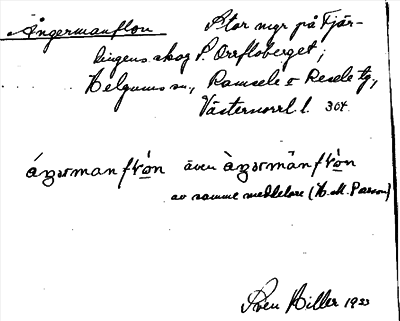 Ångermanflon Stor myr på Fjär-
lingens skog S. Orrfloberget;
Helgums sn, Ramsele o Resele tg,
Västernorrl. l. 304.
áŋərmanflo̱n även àŋərmànflo̱n
av samme meddelare (H. M. Paeson)
Sven Hiller 1933